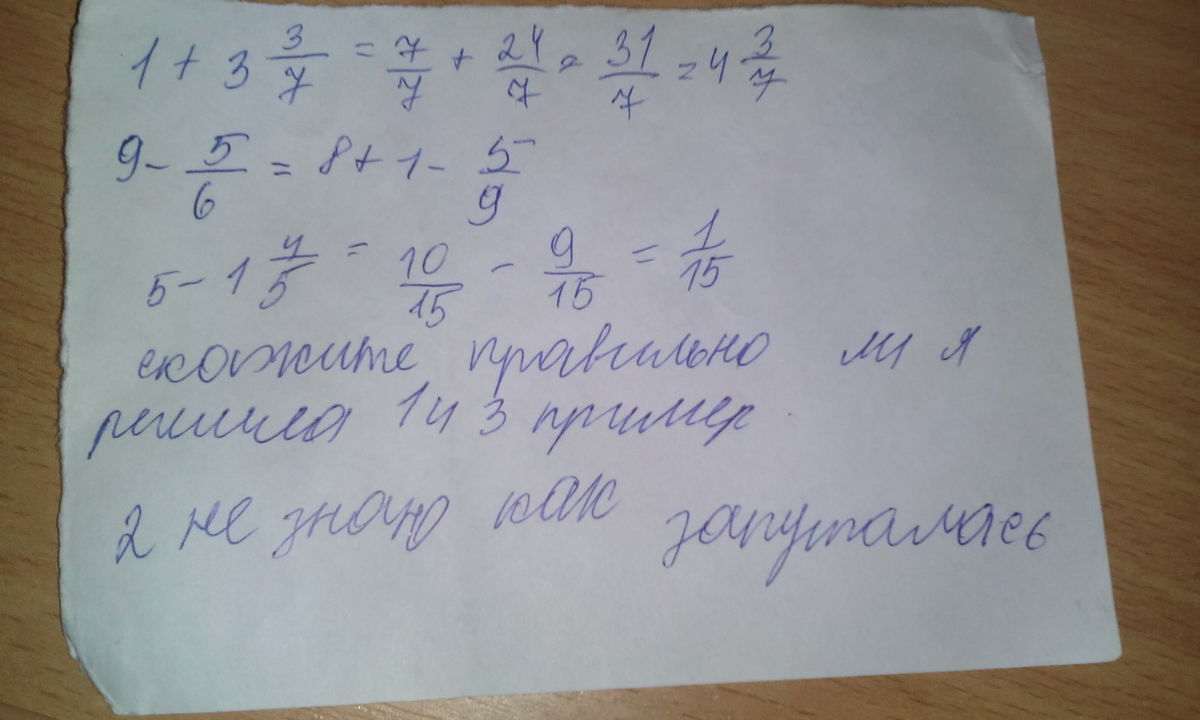 1 + 3 3/7 = 7/7 + 24/7 = 31/7 = 4 3/7
9 - 5/6 = 8 + 1 - 5/9
5 - 1 4/5 = 10/15 - 9/15 = 1/15
скажите правильно ли я
решила 1 и 3 пример
2 не знаю как запуталась